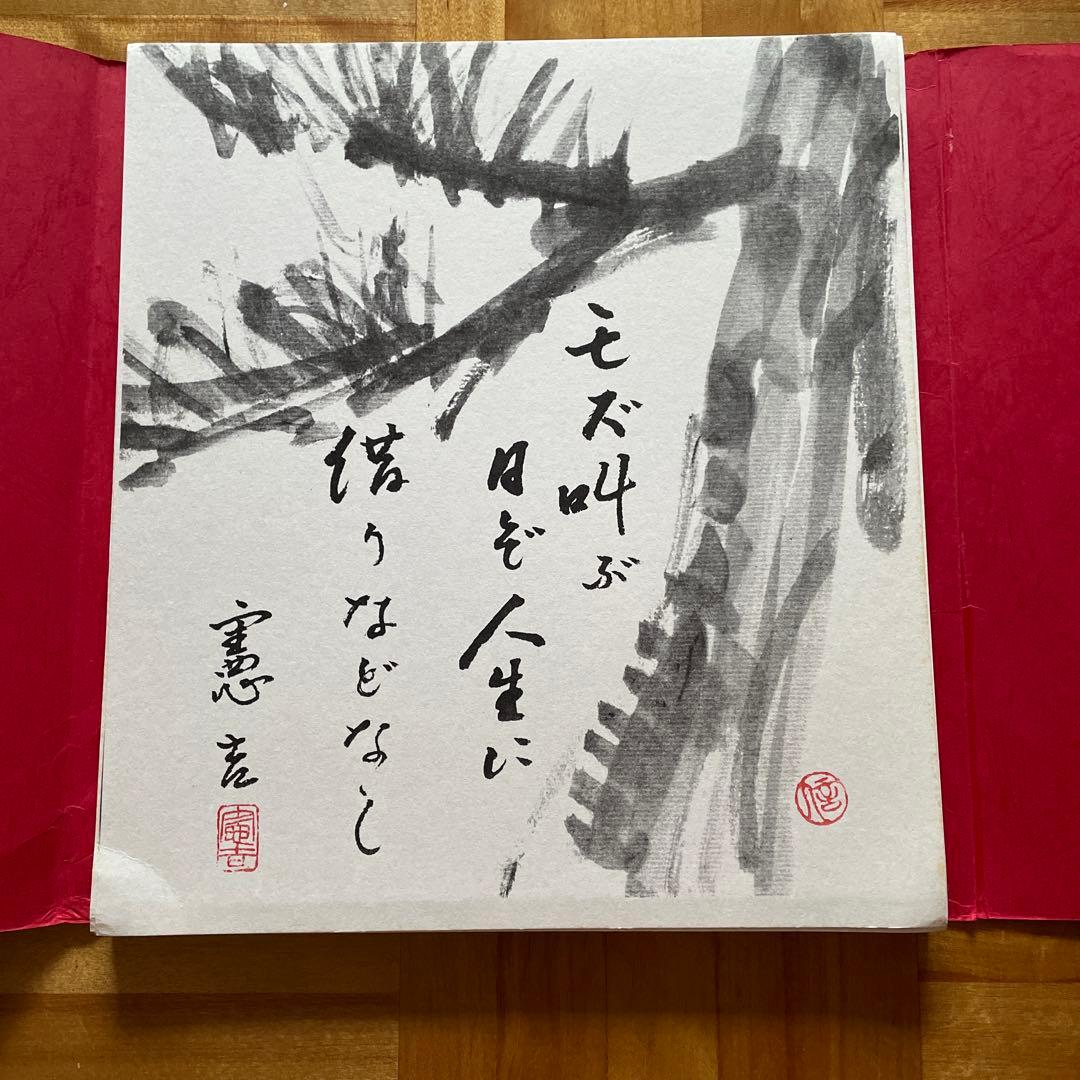 モズ叫ぶ
日ぞ人生に
借りなどなし
憲吉
憲吉
信